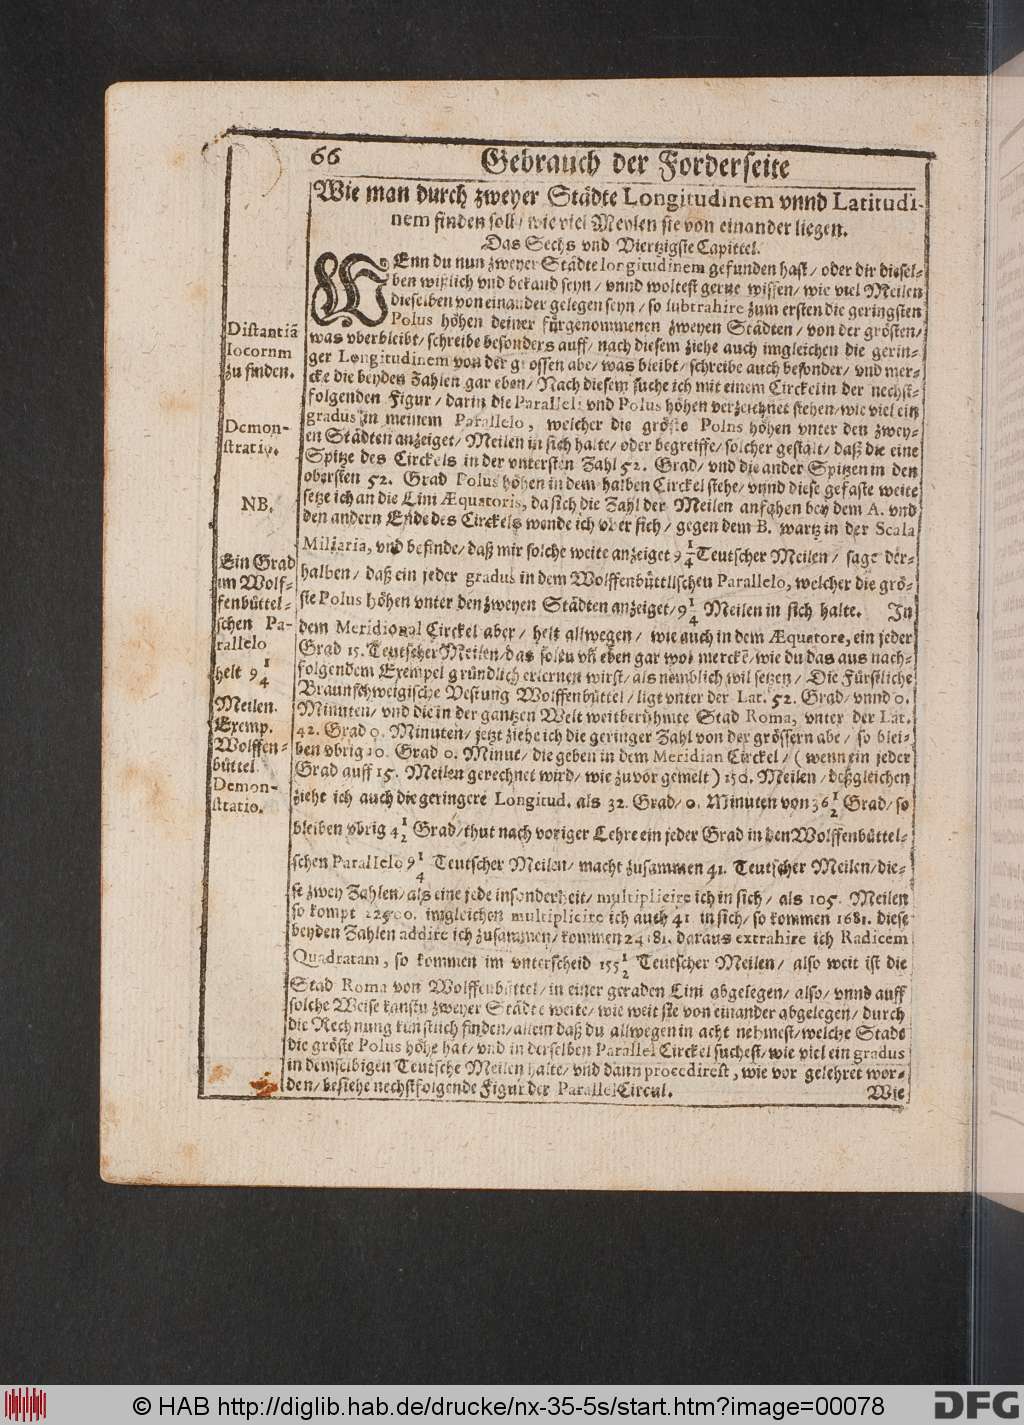 66 Gebrauch der Forderseite
Wie man durch zweyer Städte Longitudinem vnnd Latitudi-
nem finden soll / wie viel Meylen sie von einander liegen.
Das Sechs vnd Viertzigste Capittel.
WEnn du nun zweyer Städte longitudinem gefunden hast / oder dir diesel-
ben wißlich vnd bekand seyn / vnnd woltest gerne wissen / wie viel Meilen
dieselben von einander gelegen seyn / so subtrahire zum ersten die geringsten
Polus höhen deiner fürgenommenen zweyen Städten / von der grösten /
was vberbleibt / schreibe besonders auff / nach diesem ziehe auch imgleichen die gerin-
ger Longitudinem von der grossen abe / was bleibt / schreibe auch besonder / vnd mer-
cke die beyden Zahlen gar eben / Nach diesem suche ich mit einem Circkel in der nechst-
folgenden Figur / darin die Parallel: vnd Polus höhen verzeichnet stehen / wie viel ein
gradus in meinem Parallelo, welcher die gröste Polus höhen vnter den zwey-
en Städten anzeiget / Meilen in sich halte / oder begreiffe / solcher gestalt / daß die eine
Spitze des Circkels in der vntersten Zahl 52. Grad / vnd die ander Spitzen in den
obersten 52. Grad Polus höhen in dem halben Circkel stehe / vnnd diese gefaste weite
setze ich an die Lini Æquatoris, da sich die Zahl der Meilen anfahen bey dem A. vnd
den andern Ende des Circkels wende ich vber sich / gegen dem B. wartz in der Scala
Miliaria, vnd befinde / daß mir solche weite anzeiget 9 1/4 Teutscher Meilen / sage der-
halben / daß ein jeder gradus in dem Wolffenbüttlischen Parallelo, welcher die grö-
ste Polus höhen vnter den zweyen Städten anzeiget / 9 1/4 Meilen in sich halte. In
dem Meridional Circkel aber / helt allwegen / wie auch in dem Æquatore, ein jeder
Grad 15. Teutscher Meilen / das soltu vñ eben gar wol merckē / wie du das aus nach-
folgendem Exempel gründlich erlernen wirst / als nemblich wil setzen / Die Fürstliche
Braunschweigische Vestung Wolffenbüttel / ligt vnter der Lat. 52. Grad / vnnd 0.
Minuten / vnd die in der gantzen Welt weitberühmte Stad Roma, vnter der Lat.
42. Grad 0. Minuten / jetzt ziehe ich die geringer Zahl von der grössern abe / so blei-
ben vbrig 10. Grad 0. Minut / die geben in dem Meridian Circkel / ( wenn ein jeder
Grad auff 15. Meilen gerechnet wird / wie zuvor gemelt ) 150. Meilen / deßgleichen
ziehe ich auch die geringere Longitud. als 32. Grad / 0. Minuten von 36 1/2 Grad / so
bleiben vbrig 4 1/2 Grad / thut nach voriger Lehre ein jeder Grad in den Wolffenbüttel-
schen Parallelo 9 1/4 Teutscher Meilen / macht zusammen 41. Teutscher Meilen / die-
se zwey Zahlen / als eine jede insonderheit / multiplicire ich in sich / als 105. Meilen
so kompt 22500. imgleichen multiplicire ich auch 41 in sich / so kommen 1681. diese
beyden Zahlen addire ich zusammen / kommen 24181. daraus extrahire ich Radicem
Quadratam, so kommen im vnterscheid 155 1/2 Teutscher Meilen / also weit ist die
Stad Roma von Wolffenbüttel / in einer geraden Lini abgelegen / also / vnnd auff
solche Weise kanstu zweyer Städte weite / wie weit sie von einander abgelegen / durch
die Rechnung künstlich finden / allein daß du allwegen in acht nehmest / welche Stadt
die gröste Polus höhe hat / vnd in derselben Parallel Circkel suchest / wie viel ein gradus
in demselbigen Teutsche Meilen halte / vnd dann procedirest, wie vor gelehret wor-
den / besiehe nechstfolgende Figur der Parallel Circul.
Wie
Distantiā
locorum
zu finden.
Demon-
stratio.
NB.
Ein Grad
im Wolf-
fenbüttel-
schen Pa-
rallelo
helt 9 1/4
Meilen.
Exemp.
Wolffen-
büttel.
Demon-
statio.
© HAB http://diglib.hab.de/drucke/nx-35-5s/start.htm?image=00078
DFG